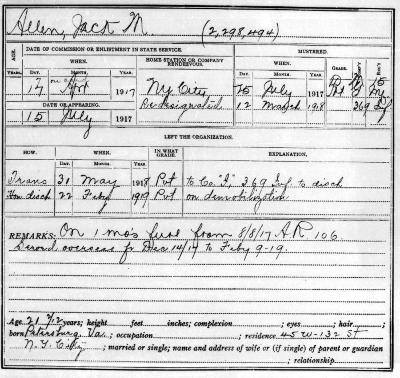 Allen, Jack M. (2,298,494)
AGE. DATE OF COMMISSION OR ENLISTMENT IN STATE SERVICE. HOME STATION OR COMPANY RENDEZVOUS. MUSTERED. GRADE.
YEARS. DAY. MONTH. YEAR. WHEN— DAY. MONTH. YEAR.
17 1917 Ny City 25 July 1917 Pvt
DATE OF APPEARING. Redesignated 12 March 1918 369 Inf
15 July 1917
LEFT THE ORGANIZATION.
HOW. WHEN— IN WHAT GRADE. EXPLANATION.
DAY. MONTH. YEAR.
Trans 31 May 1918 Pvt to Co. "I", 369 Inf to disch
Hon disch 22 Feby 1919 Pvt on demobilization
REMARKS: On 1 mo's furl from 8/8/17 A.R 106
Served overseas fr Dec 14/17 to Feby 9-19.
Age 21 years; height feet inches; complexion ; eyes ; hair ;
born Petersburg, Va. ; occupation ; residence 45 W-132 St
N.Y. City ; married or single; name and address of wife or (if single) of parent or guardian
; relationship.